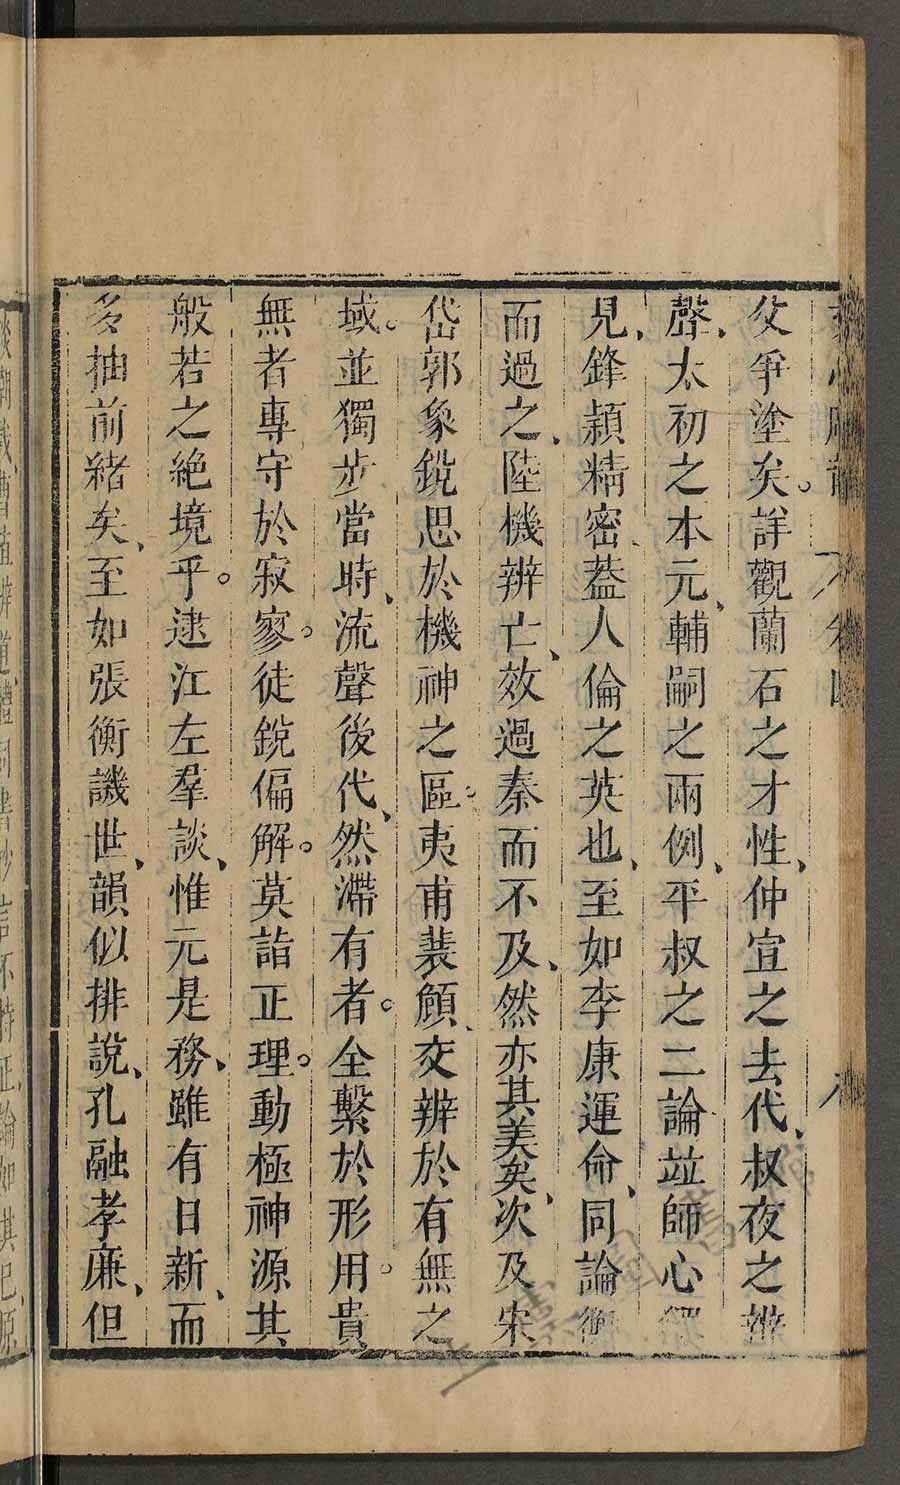 父爭塗矣。詳觀蘭石之才性、仲宣之去代、叔夜之辨
聲、太初之本元、輔嗣之兩例、平叔之二論、竝師心
見、鋒穎精密、葢人倫之英也、至如李康運命、同論
而過之、陸機辨亡、效過秦而不及、然亦其美矣、次及宋
岱郭象、銳思於機神之區。夷甫裴頠、交辨於有無之
域。並獨步當時、流聲後代、然滯有者。全繫於形用。貴
無者專守於寂寥。徒銳偏解。莫詣正理。動極神源、其
般若之絶境乎。逮江左羣談、惟元是務、雖有日新、而
多抽前緒矣、至如張衡譏世、韻似排說、孔融孝廉、但